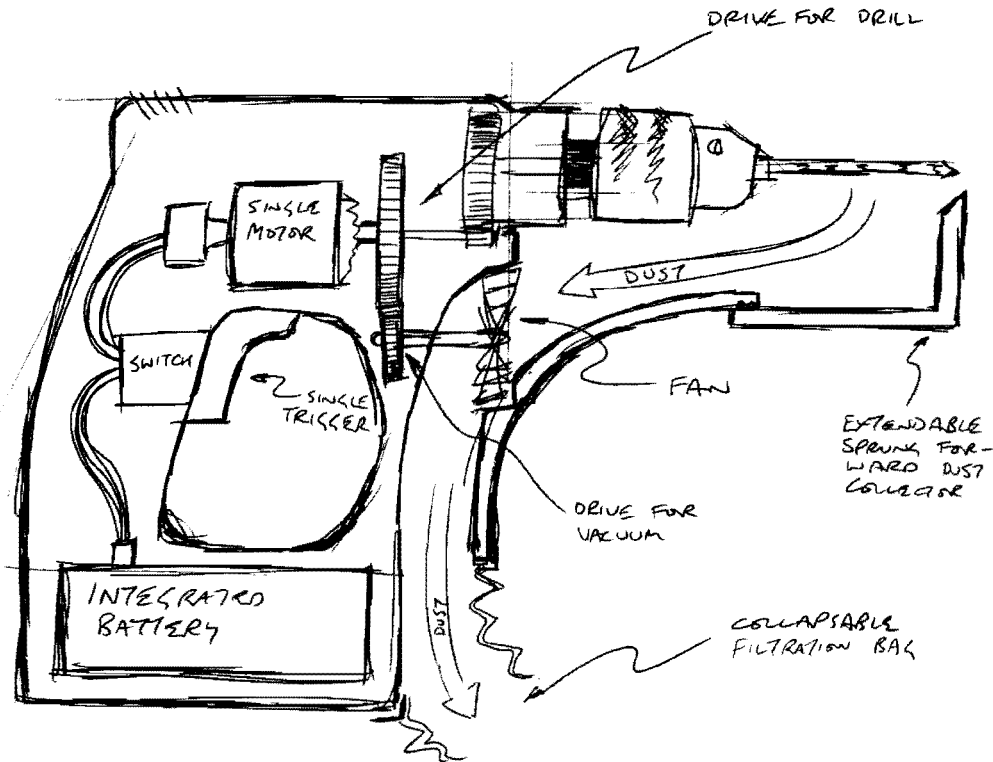 DRIVE FOR DRILL
SINGLE
MOTOR
DUST
SWITCH
SINGLE
TRIGGER
FAN
EXTENDABLE
SPRUNG FOR-
WARD DUST
COLLECTOR
DRIVE FOR
VACUUM
INTEGRATED
BATTERY
DUST
COLLAPSABLE
FILTRATION BAG